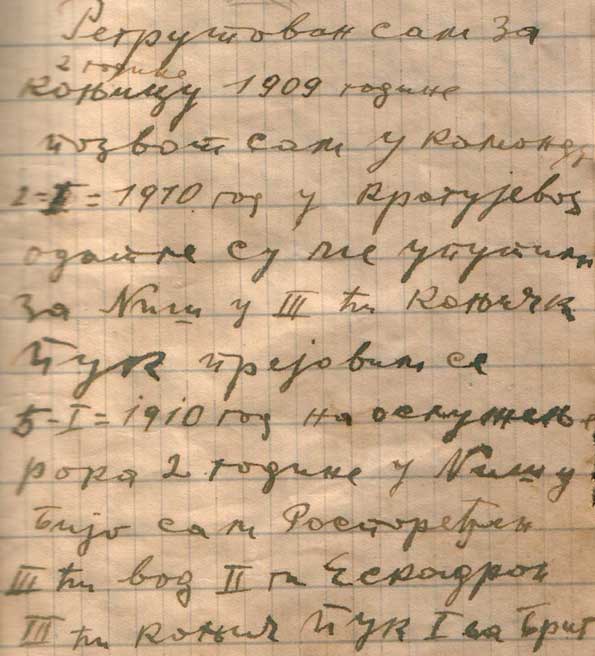 Регрутован сам за
2 године
коњицу 1909 године
позват сам у команду
2-I=1910 год у Крагујевац
одакле су ме упутили
за Ниш у III ћи Коњичк
пук прејавим се
5-I=1910 год на ослужење
рока 2 године у Нишу
Бијо сам Распоређен
III ћи вод II ги Ескадрон
III ћи коњич пук I ва Бриг